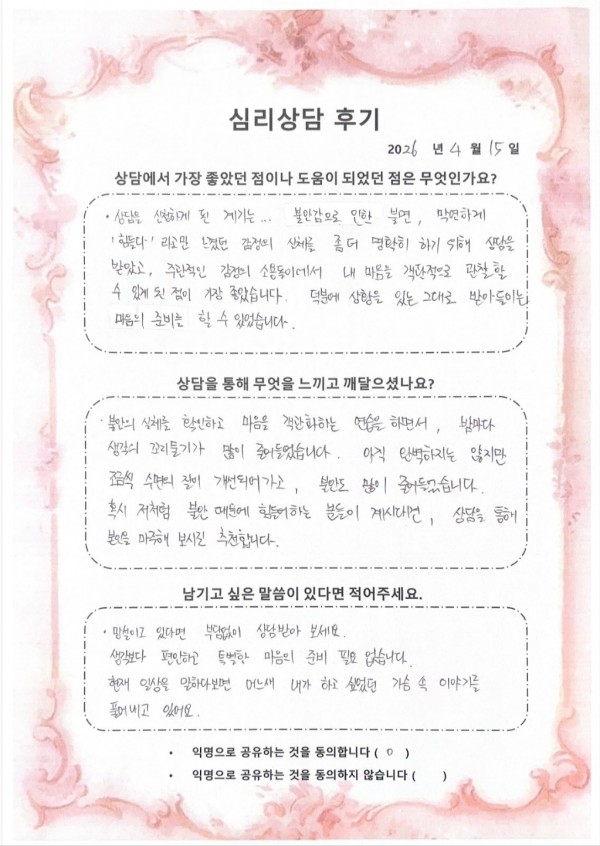 심리상담 후기
2026 년 4 월 15 일
상담에서 가장 좋았던 점이나 도움이 되었던 점은 무엇인가요?
• 상담을 신청하게 된 계기는... 불안감으로 인한 불면, 막연하게
'힘들다' 라고만 느꼈던 감정의 실체를 좀 더 명확히 하기 위해 상담을
받았고, 주관적인 감정의 소용돌이에서 내 마음을 객관적으로 관찰 할
수 있게 된 점이 가장 좋았습니다. 덕분에 상황을 있는 그대로 받아들이는
마음의 준비를 할 수 있었습니다.
상담을 통해 무엇을 느끼고 깨달으셨나요?
• 불안의 실체를 확인하고 마음을 객관화하는 연습을 하면서, 밤마다
생각의 꼬리물기가 많이 줄어들었습니다. 아직 완벽하지는 않지만
조금씩 수면의 질이 개선되어가고, 불안도 많이 줄어들었습니다.
혹시 저처럼 불안 때문에 힘들어하는 분들이 계시다면, 상담을 통해
본인을 마주해 보시길 추천합니다.
남기고 싶은 말씀이 있다면 적어주세요.
• 망설이고 있다면 부담없이 상담받아 보세요.
생각보다 편안하고 특별한 마음의 준비 필요 없습니다.
현재 일상을 말하다보면 어느새 내가 하고 싶었던 가슴 속 이야기를
풀어내고 있어요.
• 익명으로 공유하는 것을 동의합니다 ( O )
• 익명으로 공유하는 것을 동의하지 않습니다 ( )